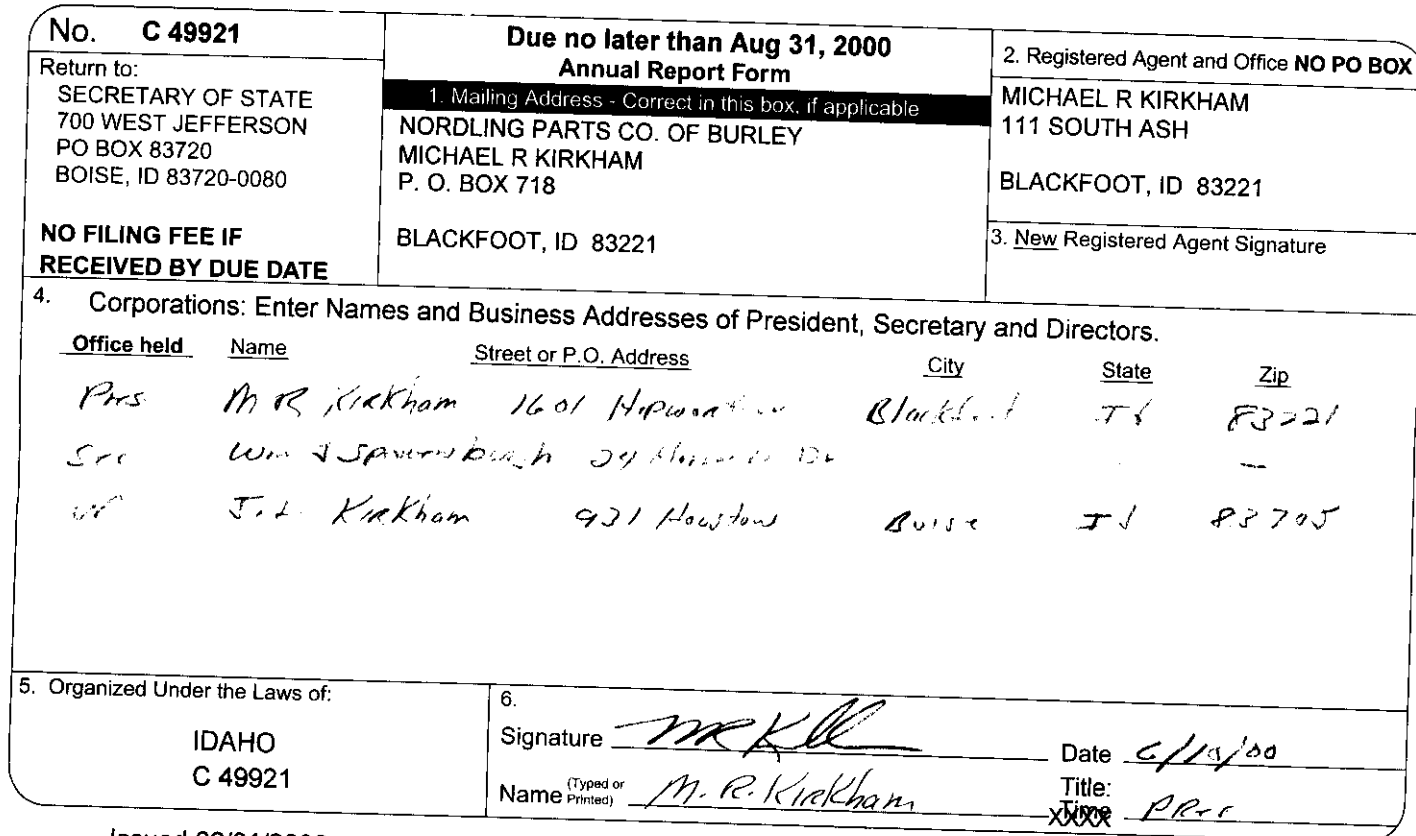 No. C 49921
Return to:
SECRETARY OF STATE
700 WEST JEFFERSON
PO BOX 83720
BOISE, ID 83720-0080
NO FILING FEE IF
RECEIVED BY DUE DATE
Due no later than Aug 31, 2000
Annual Report Form
1. Mailing Address - Correct in this box, if applicable
NORDLING PARTS CO. OF BURLEY
MICHAEL R KIRKHAM
P. O. BOX 718
BLACKFOOT, ID 83221
2. Registered Agent and Office NO PO BOX
MICHAEL R KIRKHAM
111 SOUTH ASH
BLACKFOOT, ID 83221
3. New Registered Agent Signature
4. Corporations: Enter Names and Business Addresses of President, Secretary and Directors.
Office held Name Street or P.O. Address City State Zip
Pres M R Kirkham 1601 Blackfoot Id 83221
Sec Wm J 24 Dr
VP J. L. Kirkham 931 Houston Boise Id 83705
5. Organized Under the Laws of:
IDAHO
C 49921
6.
Signature MR K
Date 6/ /00
Name (Typed or Printed) M. R. Kirkham
Title:
Pres